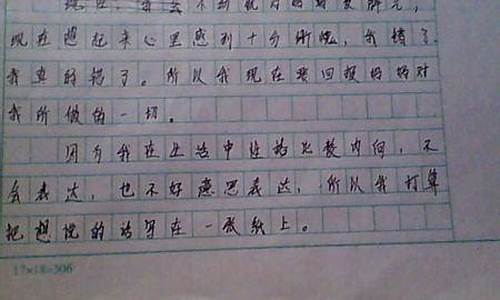 现在想起来心里感到十分惭愧，我错了.
我真的错了。所以我现在要回报妈妈对
我所做的一切。
因为我在生活中性格比较内向，不
会表达，也不好意思表达，所以我打算
把想说的话写在一张纸上。
17×18=306